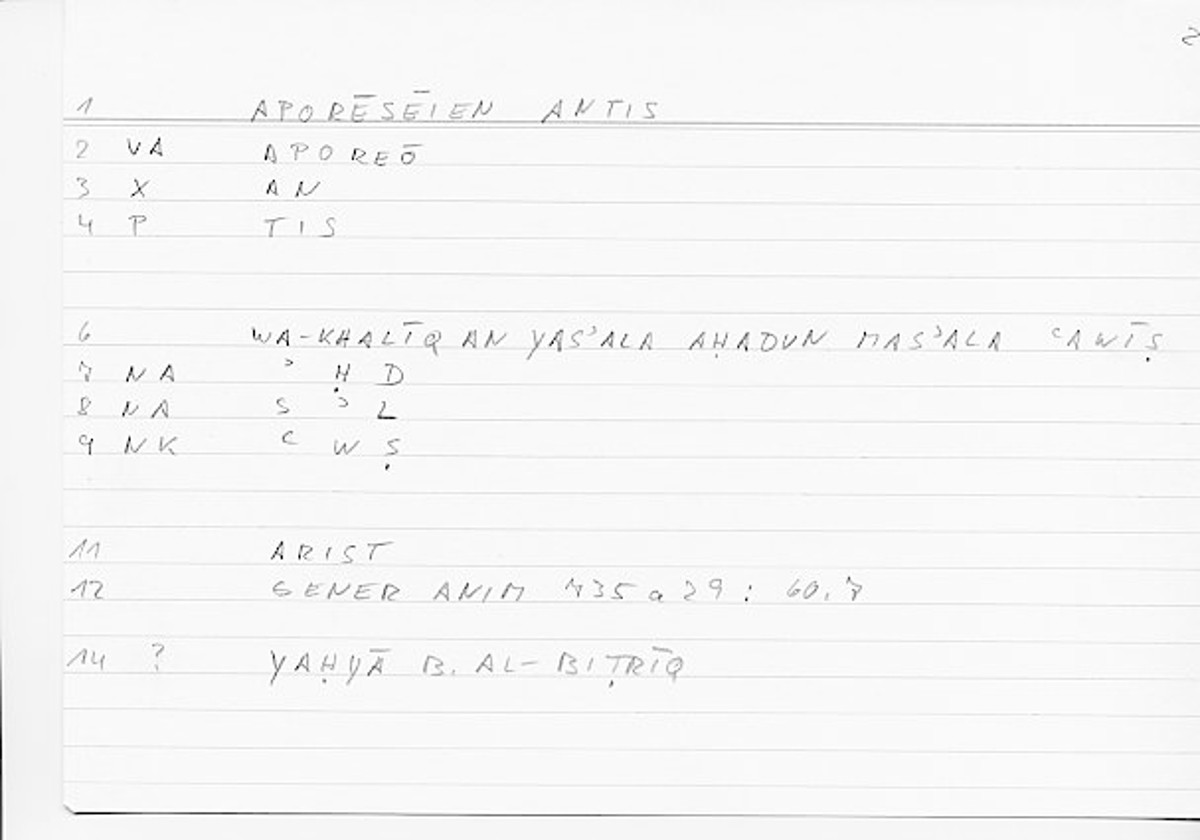 2
1 APORĒSĒIEN ANTIS
2 VA APOREŌ
3 X AN
4 P TIS
6 WA-KHALĪQ AN YASʾALA AḤADUN MASʾALA ʿAWĪṢ
7 NA ʾ Ḥ D
8 NA S ʾ L
9 NK ʿ W Ṣ
11 ARIST
12 GENER ANIM 735a29 : 60,7
14 ? YAḤYĀ B. AL-BIṬRĪQ